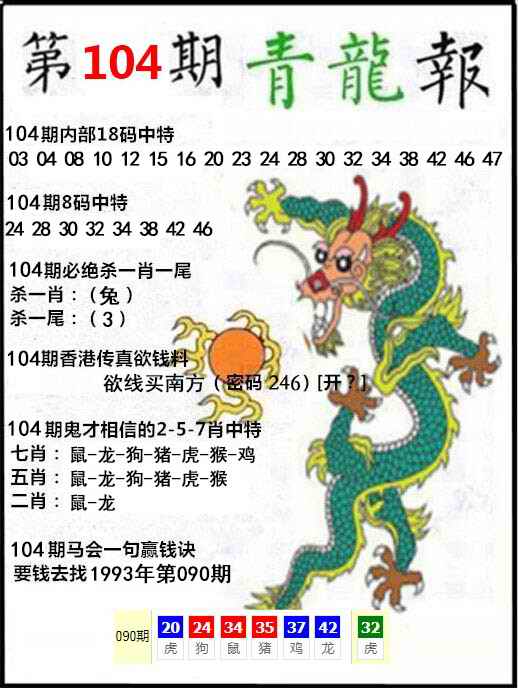 第104期青龍報
104期内部18码中特
03 04 08 10 12 15 16 20 23 24 28 30 32 34 38 42 46 47
104期8码中特
24 28 30 32 34 38 42 46
104期必绝杀一肖一尾
杀一肖：(兔)
杀一尾：(3)
104期香港传真欲钱料
欲线买南方（密码 246) [开？]
104期鬼才相信的2-5-7肖中特
七肖：鼠-龙-狗-猪-虎-猴-鸡
五肖：鼠-龙-狗-猪-虎-猴
二肖：鼠-龙
104期马会一句赢钱诀
要钱去找1993年第090期
090期 20 24 34 35 37 42 32
虎 狗 鼠 猪 鸡 龙 虎